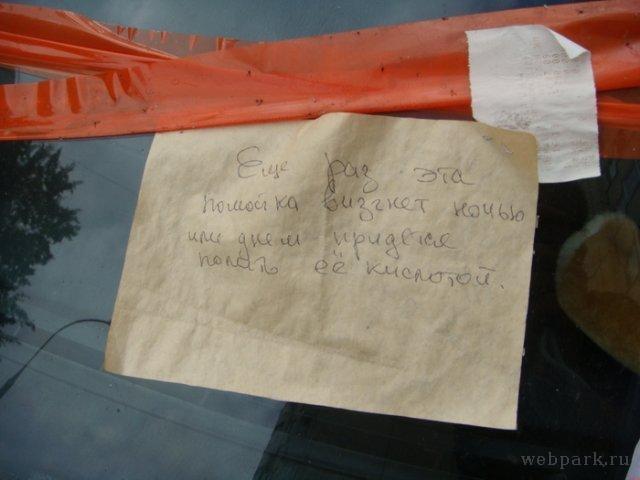 Еще раз эта
помойка визгнет ночью
или днем придется
полить её кислотой.
webpark.ru